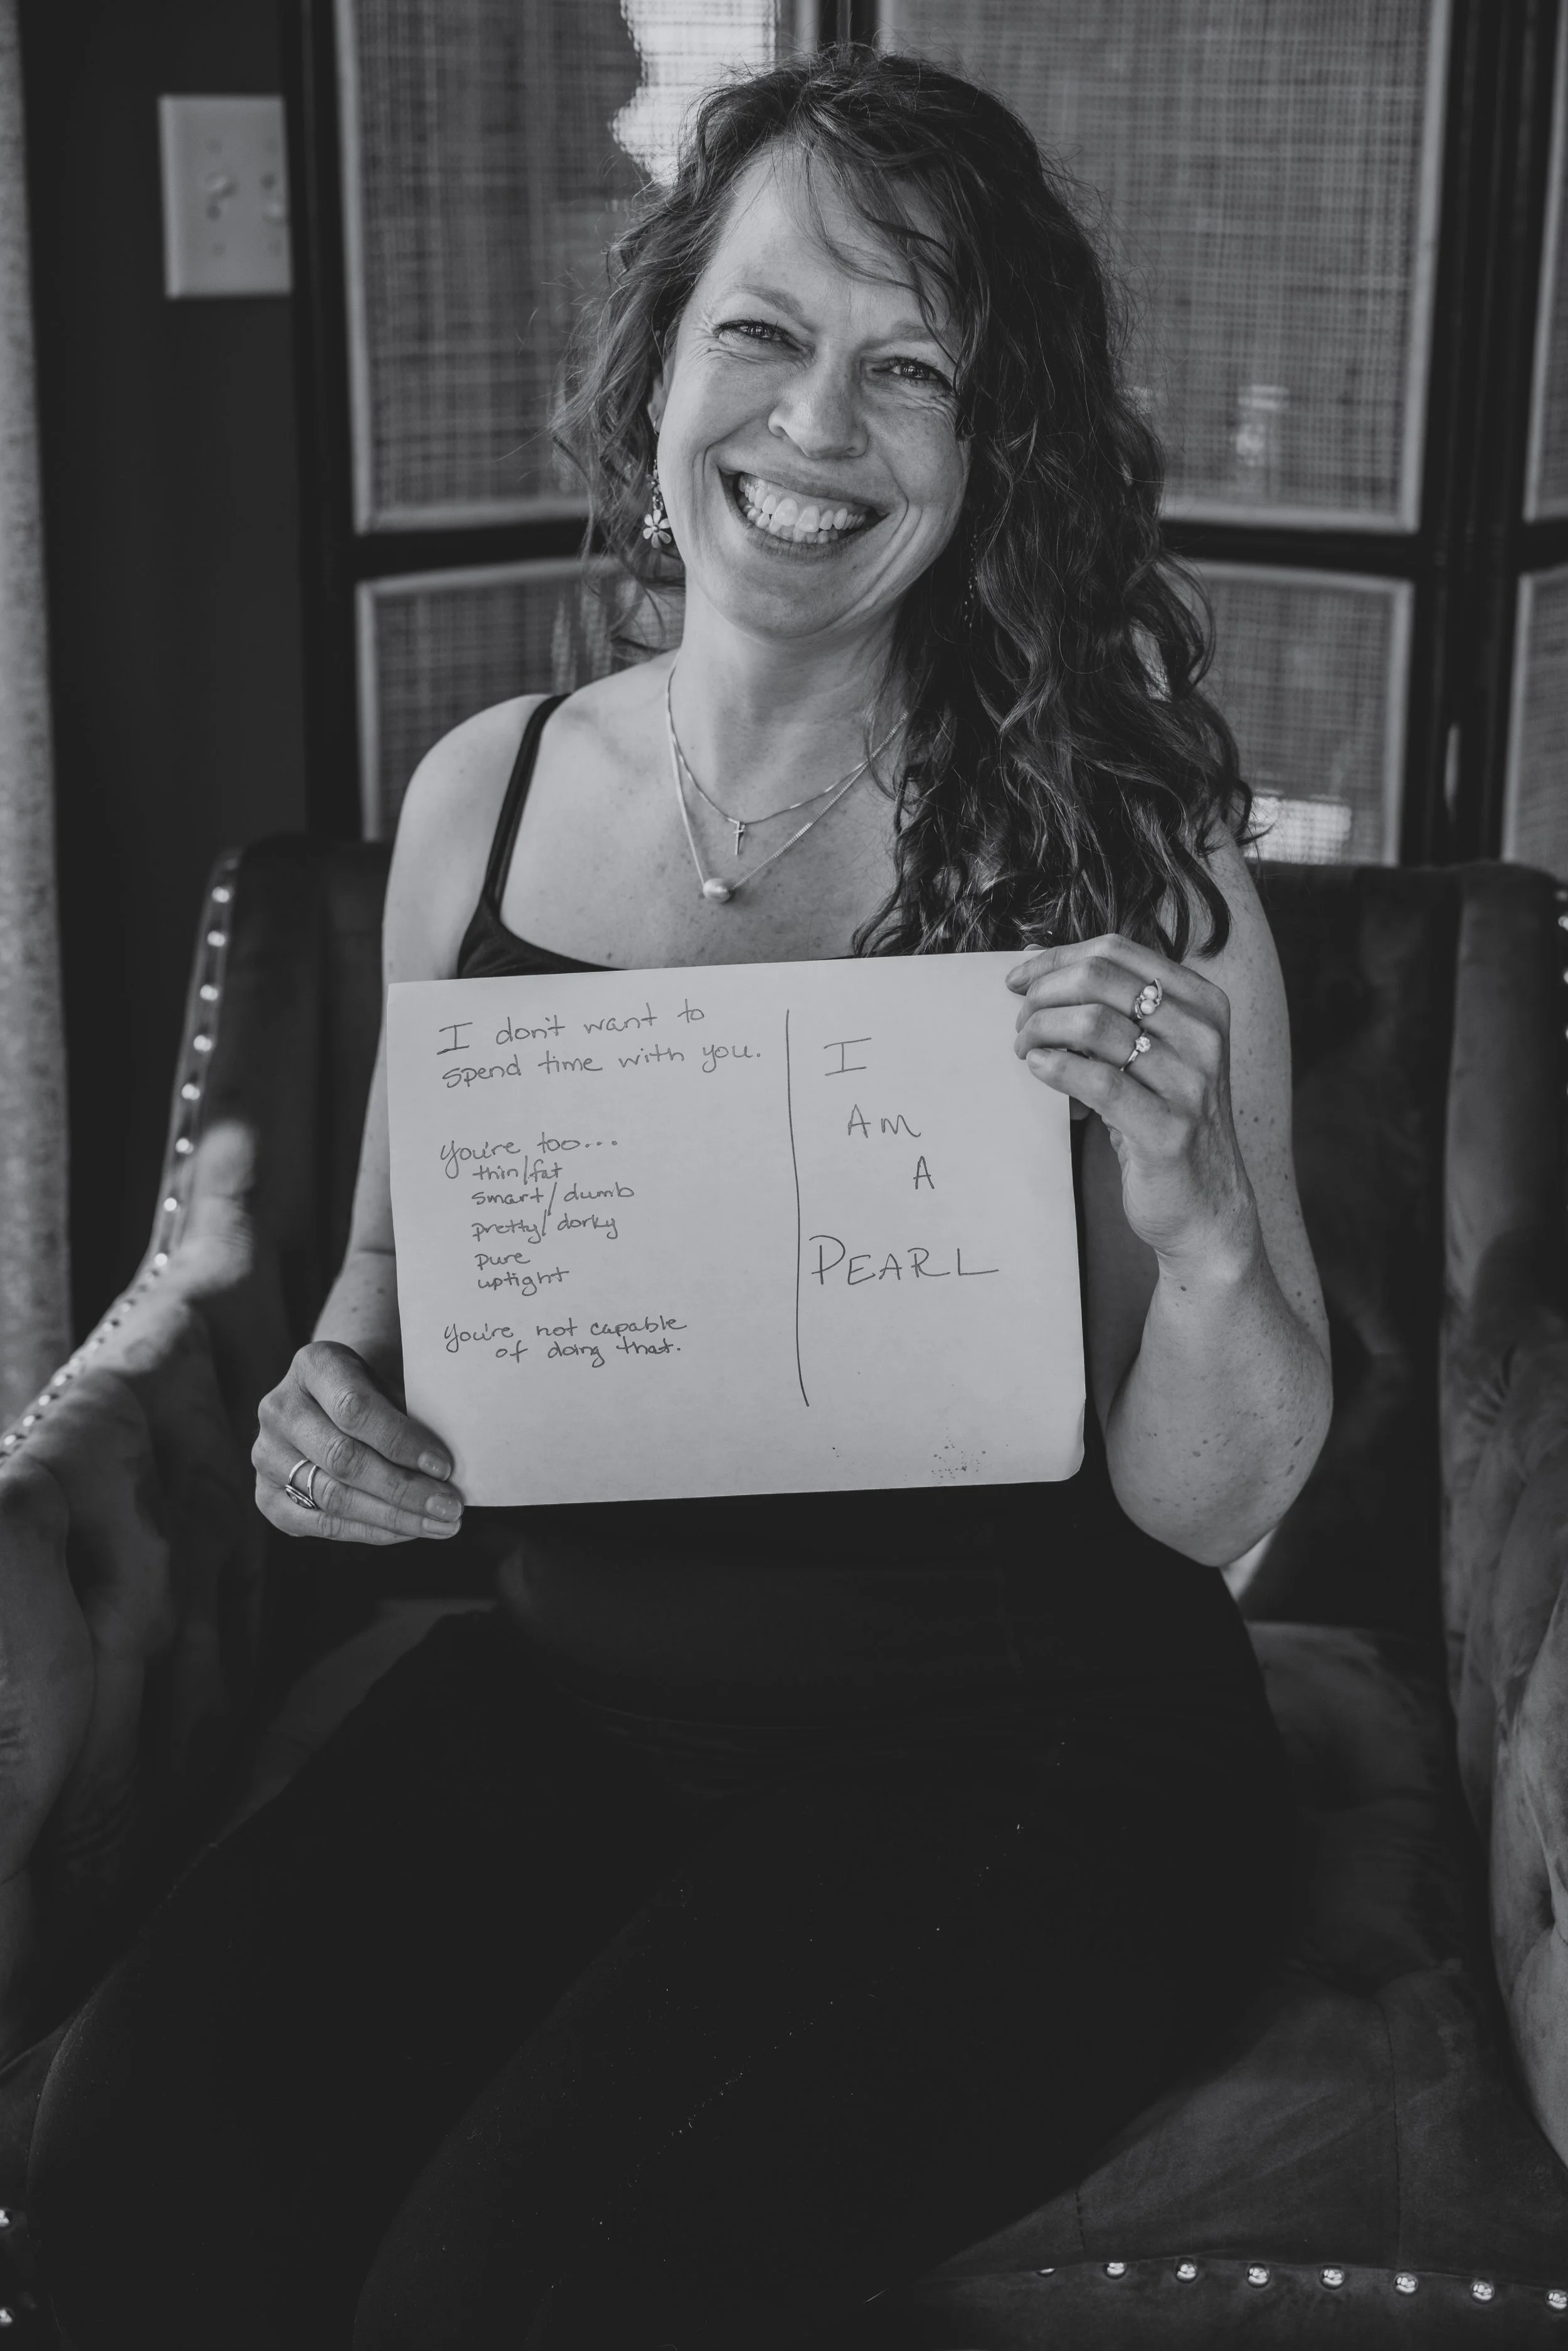 I don't want to
spend time with you.
You're too...
thin/fat
smart/dumb
pretty/dorky
pure
uptight
You're not capable
of doing that.
I
AM
A
PEARL